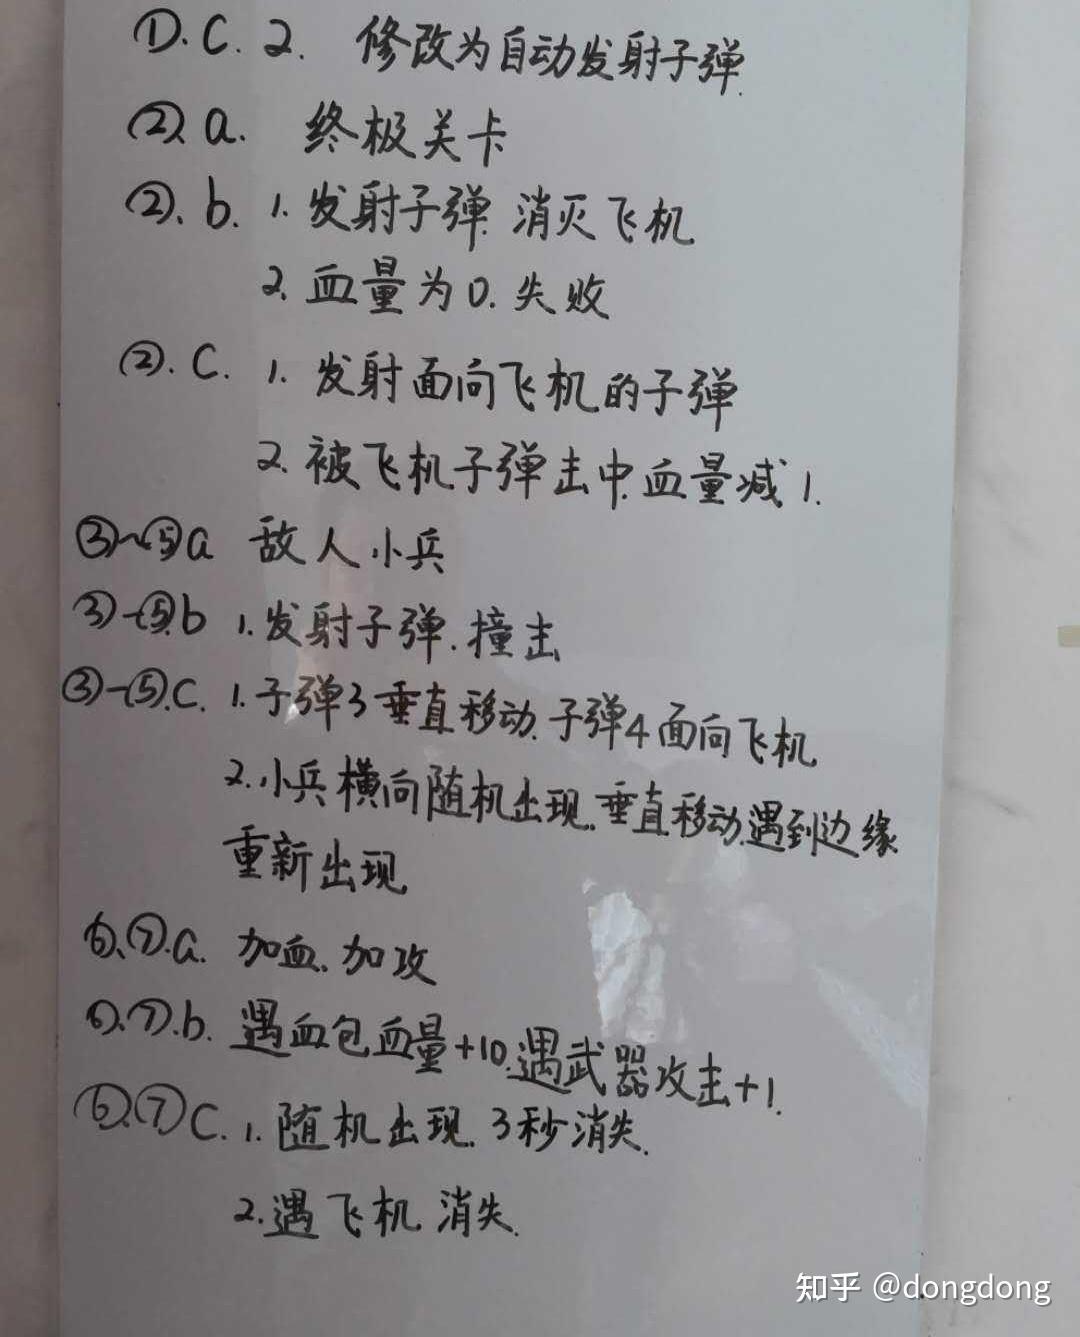 ①.C.2. 修改为自动发射子弹.
②.a. 终极关卡
②.b. 1.发射子弹.消灭飞机
2.血量为0.失败
②.C. 1.发射面向飞机的子弹
2.被飞机子弹击中.血量减1.
③~⑤a 敌人小兵
③-⑤.b 1.发射子弹.撞击
③-⑤.C. 1.子弹3垂直移动.子弹4面向飞机
2.小兵横向随机出现.垂直移动.遇到边缘
重新出现.
⑥、⑦.a. 加血.加攻
⑥.⑦.b. 遇血包血量+10.遇武器攻击+1.
⑥.⑦C. 1.随机出现.3秒消失.
2.遇飞机.消失.
知乎 @dongdong